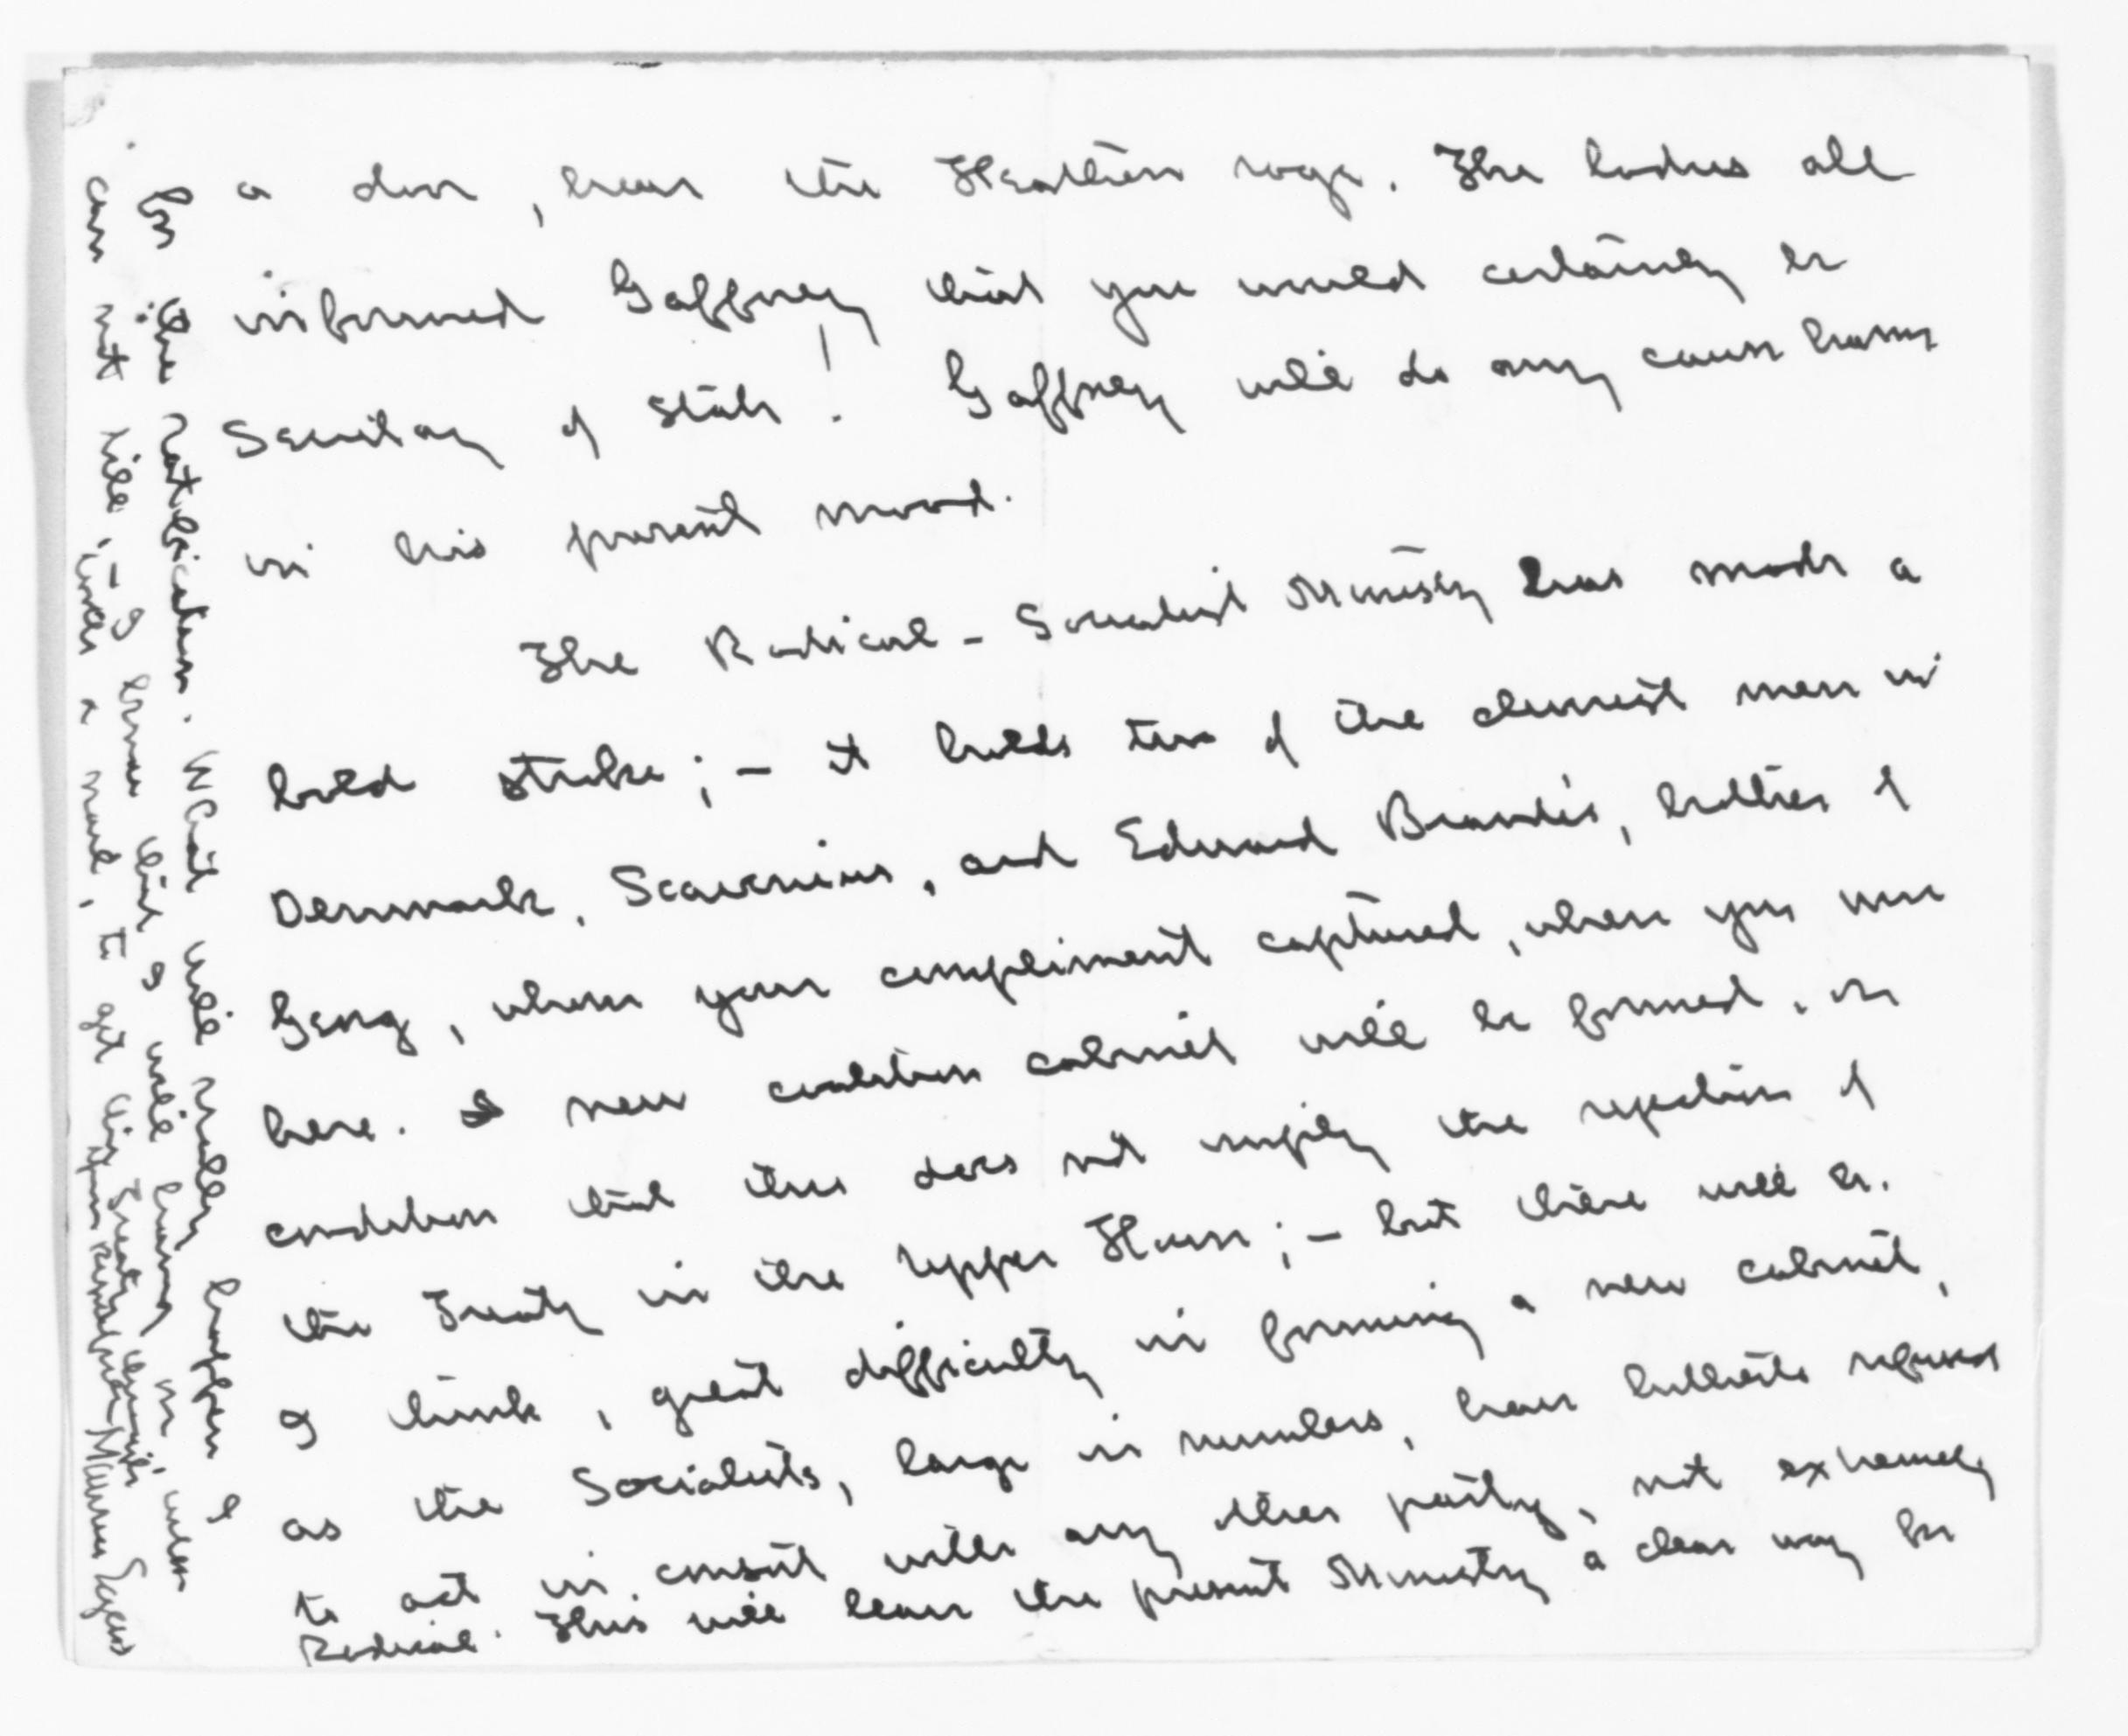 a door, hear the Heathen rage. The ladies all
informed Gaffney that you would certainly be
Secretary of State! Gaffney will do any cause harm
in his present mood.
The Radical-Socialist Ministry has made a
bold stroke; - it holds two of the cleverest men in
Denmark, Scavenius, and Edward Brandès, brother of
Georg, whom your compliment captured, when you were
here. A new coalition cabinet will be formed, on
condition that this does not imply the rejection of
the Treaty in the Upper House; - but there will be,
I think, great difficulty in forming a new cabinet,
as the Socialists, large in numbers, have hitherto refused
to act in consort with any other party, not extremely
Radical. This will leave the present Ministry a clear way for
the ratification. What will really happen I
can not tell, - I know that I will hang on, unless
under a mark, to get this Treaty through
Yours Maurice Egan